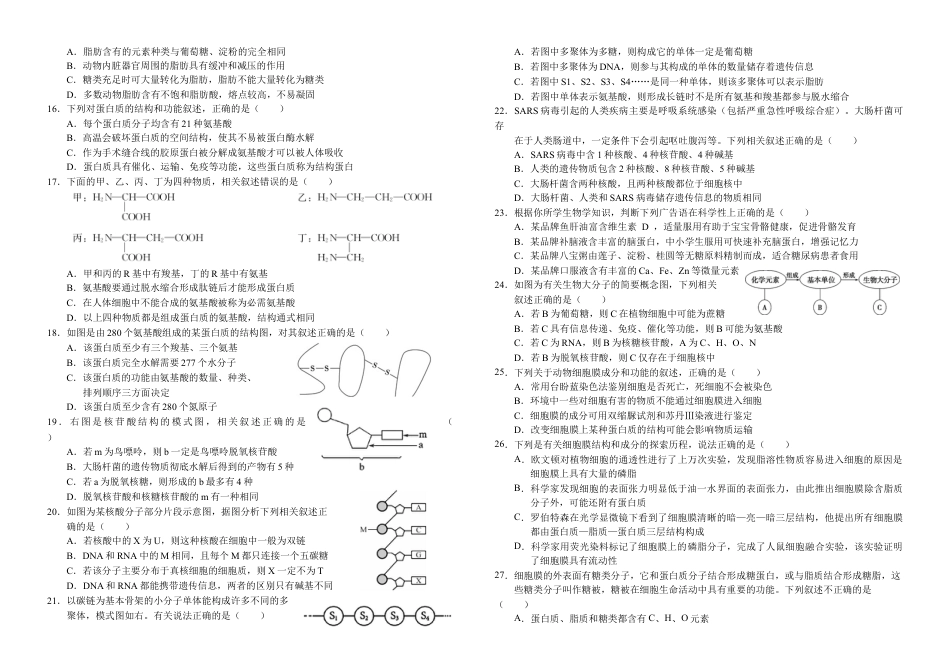 A．脂肪含有的元素种类与葡萄糖、淀粉的完全相同
B．动物内脏器官周围的脂肪具有缓冲和减压的作用
C．糖类充足时可大量转化为脂肪，脂肪不能大量转化为糖类
D．多数动物脂肪含有不饱和脂肪酸，熔点较高，不易凝固
16．下列对蛋白质的结构和功能叙述，正确的是（　　）
A．每个蛋白质分子均含有 21 种氨基酸
B．高温会破坏蛋白质的空间结构，使其不易被蛋白酶水解
C．作为手术缝合线的胶原蛋白被分解成氨基酸才可以被人体吸收
D．蛋白质具有催化、运输、免疫等功能，这些蛋白质称为结构蛋白
17．下面的甲、乙、丙、丁为四种物质，相关叙述错误的是（　　）
甲：H₂N—CH—COOH
COOH
乙：H₂N—CH₂—CH₂—COOH
丙：H₂N—CH—CH₂—COOH
COOH
丁：H₂N—CH—COOH
H₂N—CH₂
A．甲和丙的 R 基中有羧基，丁的 R 基中有氨基
B．氨基酸要通过脱水缩合形成肽链后才能形成蛋白质
C．在人体细胞中不能合成的氨基酸被称为必需氨基酸
D．以上四种物质都是组成蛋白质的氨基酸，结构通式相同
18．如图是由 280 个氨基酸组成的某蛋白质的结构图，对其叙述正确的是（　　）
A．该蛋白质至少有三个羧基、三个氨基
B．该蛋白质完全水解需要 277 个水分子
C．该蛋白质的功能由氨基酸的数量、种类、
排列顺序三方面决定
D．该蛋白质至少含有 280 个氮原子
S—S
S
S
19．右图是核苷酸结构的模式图，相关叙述正确的是（
）
A．若 m 为鸟嘌呤，则 b 一定是鸟嘌呤脱氧核苷酸
B．大肠杆菌的遗传物质彻底水解后得到的产物有 5 种
C．若 a 为脱氧核糖，则形成的 b 最多有 4 种
D．脱氧核苷酸和核糖核苷酸的 m 有一种相同
m
a
b
20．如图为某核酸分子部分片段示意图，据图分析下列相关叙述正
确的是（　　）
A．若核酸中的 X 为 U，则这种核酸在细胞中一般为双链
B．DNA 和 RNA 中的 M 相同，且每个 M 都只连接一个五碳糖
C．若该分子主要分布于真核细胞的细胞质，则 X 一定不为 T
D．DNA 和 RNA 都能携带遗传信息，两者的区别只有碱基不同
A
M
C
G
X
21．以碳链为基本骨架的小分子单体能构成许多不同的多
聚体，模式图如右。有关说法正确的是（　　）
S₁ S₂ S₃ S₄
A．若图中多聚体为多糖，则构成它的单体一定是葡萄糖
B．若图中多聚体为 DNA，则参与其构成的单体的数量储存着遗传信息
C．若图中 S1、S2、S3、S4……是同一种单体，则该多聚体可以表示脂肪
D．若图中单体表示氨基酸，则形成长链时不是所有氨基和羧基都参与脱水缩合
22．SARS 病毒引起的人类疾病主要是呼吸系统感染（包括严重急性呼吸综合症），大肠杆菌可
存
在于人类肠道中，一定条件下会引起呕吐腹泻等。下列相关叙述正确的是（　　）
A．SARS 病毒中含 1 种核酸、4 种核苷酸、4 种碱基
B．人类的遗传物质包含 2 种核酸、8 种核苷酸、5 种碱基
C．大肠杆菌含两种核酸，且两种核酸都位于细胞核中
D．大肠杆菌、人类和 SARS 病毒储存遗传信息的物质相同
23．根据你所学生物学知识，判断下列广告语在科学性上正确的是（　　）
A．某品牌鱼肝油富含维生素 D ，适量服用有助于宝宝骨骼健康，促进骨骼发育
B．某品牌补脑液含丰富的脑蛋白，中小学生服用可快速补充脑蛋白，增强记忆力
C．某品牌八宝粥由莲子、淀粉、桂圆等无糖原料精制而成，适合糖尿病患者食用
D．某品牌口服液含有丰富的 Ca、Fe、Zn 等微量元素
24．如图为有关生物大分子的简要概念图，下列相关
叙述正确的是（　　）
化学元素 组成 基本单位 形成 生物大分子
A B C
A．若 B 为葡萄糖，则 C 在植物细胞中可能为蔗糖
B．若 C 具有信息传递、免疫、催化等功能，则 B 可能为氨基酸
C．若 C 为 RNA，则 B 为核糖核苷酸，A 为 C、H、O、N
D．若 B 为脱氧核苷酸，则 C 仅存在于细胞核中
25．下列关于动物细胞膜成分和功能的叙述，正确的是（　　）
A．常用台盼蓝染色法鉴别细胞是否死亡，死细胞不会被染色
B．环境中一些对细胞有害的物质不能通过细胞膜进入细胞
C．细胞膜的成分可用双缩脲试剂和苏丹Ⅲ染液进行鉴定
D．改变细胞膜上某种蛋白质的结构可能会影响物质运输
26．下列是有关细胞膜结构和成分的探索历程，说法正确的是（　　）
A．欧文顿对植物细胞的通透性进行了上万次实验，发现脂溶性物质容易进入细胞的原因是
细胞膜上具有大量的磷脂
B．科学家发现细胞的表面张力明显低于油一水界面的表面张力，由此推出细胞膜除含脂质
分子外，可能还附有蛋白质
C．罗伯特森在光学显微镜下看到了细胞膜清晰的暗—亮—暗三层结构，他提出所有细胞膜
都由蛋白质—脂质—蛋白质三层结构构成
D．科学家用荧光染料标记了细胞膜上的磷脂分子，完成了人鼠细胞融合实验，该实验证明
了细胞膜具有流动性
27．细胞膜的外表面有糖类分子，它和蛋白质分子结合形成糖蛋白，或与脂质结合形成糖脂，这
些糖类分子叫作糖被，糖被在细胞生命活动中具有重要的功能。下列叙述不正确的是
（　　）
A．蛋白质、脂质和糖类都含有 C、H、O 元素